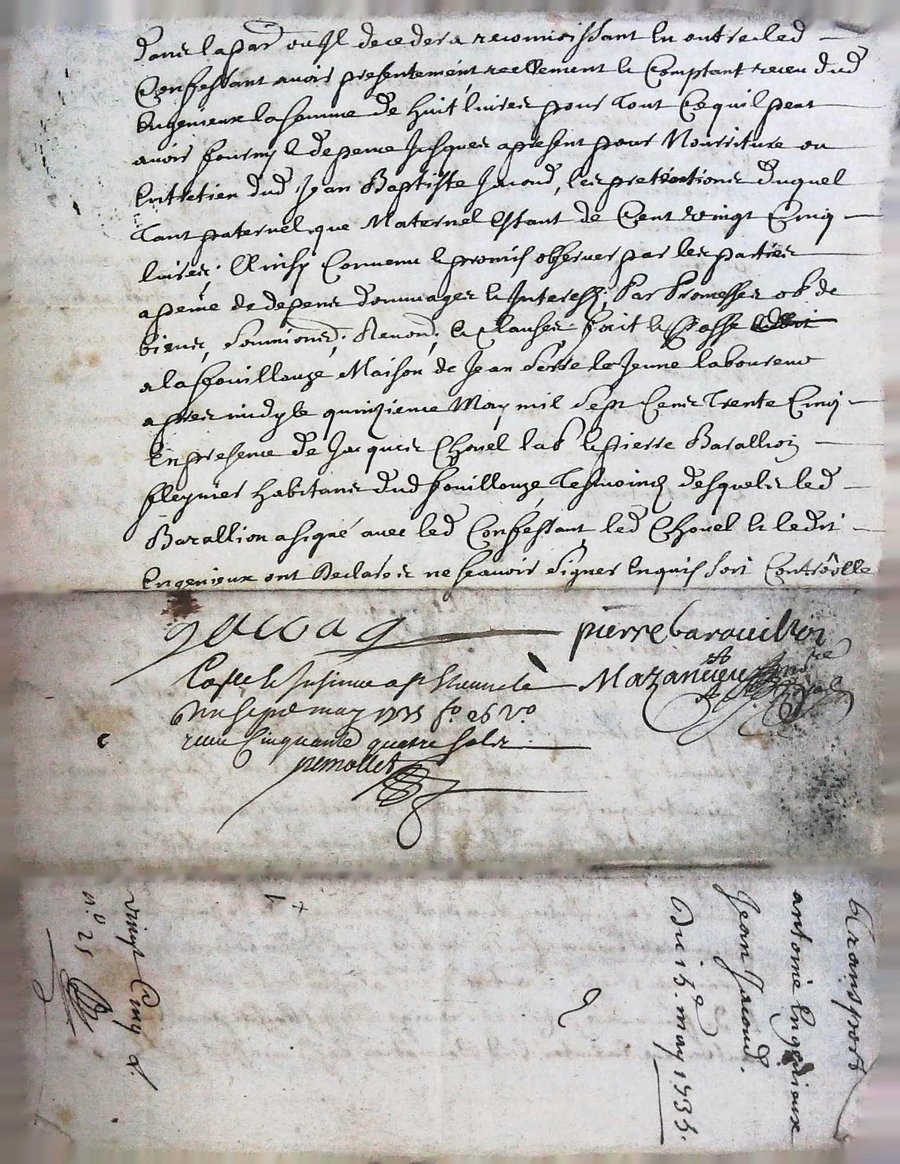 dans la part ou Il decedera reconnoissant En outre led
Confessant avoir presentement reellement & Comptant receu dud
Engenieux la somme de huit livres pour tout Ce quil peut
avoir fourny & depencé Jusques apresent pour Nourriture ou
Entretien dud Jean Baptiste Jacoud, les pretentions duquel
tant paternel que Maternel Estant de Cent vingt Cinq
livres; Ainsy Convenu & promis observer par les parties
a peine de depens dommages & Interests, Par Promesses ob de
biens, Soumions, Renonᵒⁿ, & Clauses fait & Passé
a la fouillouze Maison de Jean le Jeune laboureur
apres midy le quinzieme May mil Sept Cents Trente Cinq
En presence de Jacques Chovel labʳ & Pierre Barallion
habitans dud fouillouze Tesmoins desquels led
Barallion a signé avec led Confessant, led Chovel & ledit
Engenieux ont Declarés ne scavoir Signer Enquis soit Contrôllé
Jacoud pierre barouillon
Mazancieu
may 1735 fᵒ 26 Vᵒ
receu Cinquante quatre sols
pemollet
transport
antoine Engenieux
Jean Jacoud.
Du 15ᵉ may 1735.
1
vingt Cinq s.
nᵒ 25